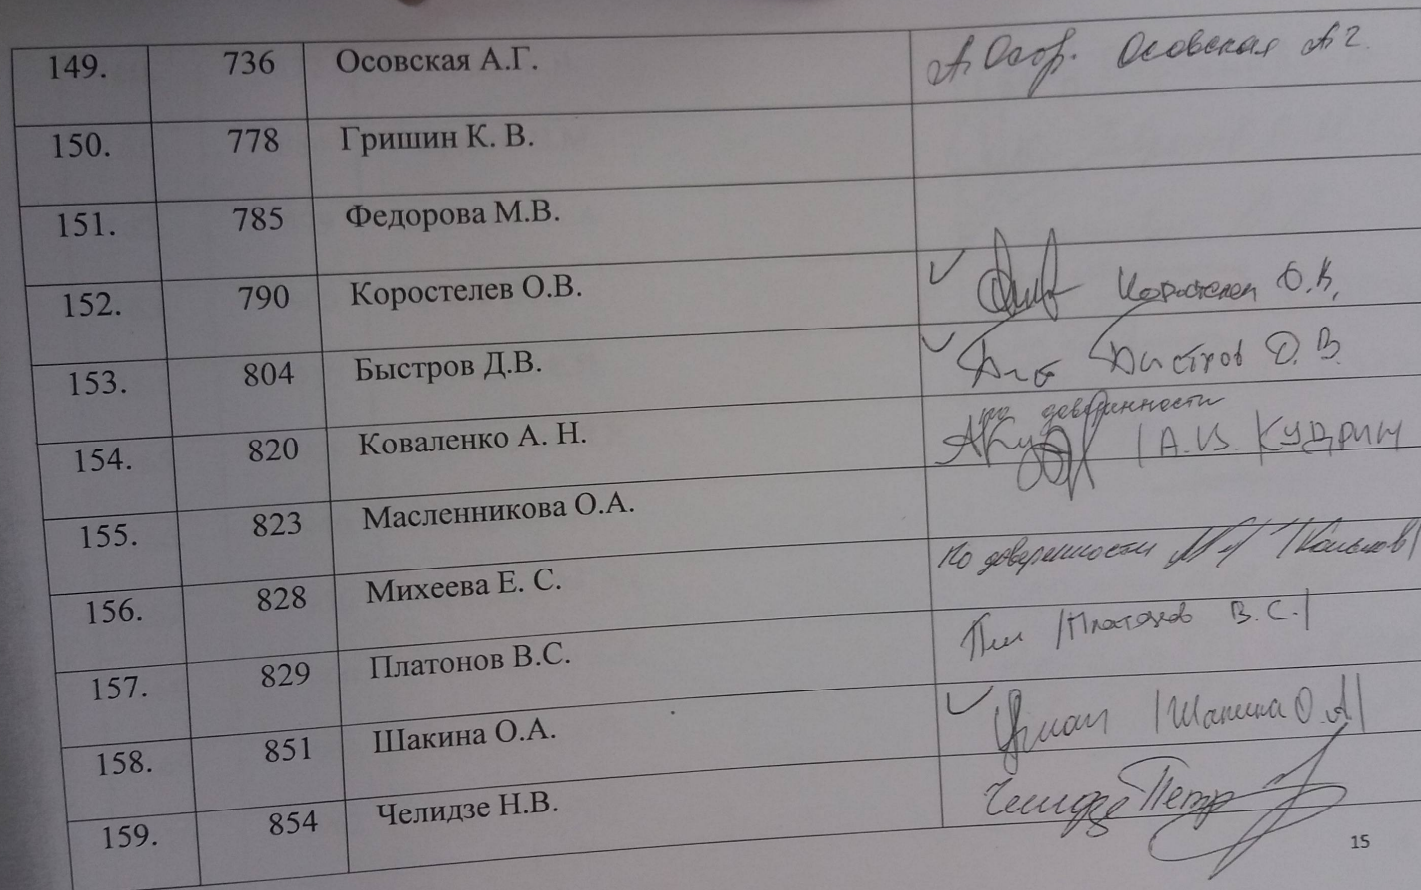 149. 736 Осовская А.Г. Осовская А Г.
150. 778 Гришин К. В.
151. 785 Федорова М.В.
152. 790 Коростелев О.В. Коростелев О.В.
153. 804 Быстров Д.В. Быстров Д. В.
по доверенности
154. 820 Коваленко А. Н. / А.В. КУДРИН
155. 823 Масленникова О.А.
156. 828 Михеева Е. С. по доверенности
157. 829 Платонов В.С. /Платонов В.С./
158. 851 Шакина О.А. /Шакина О.А/
159. 854 Челидзе Н.В. Челидзе Петр
15